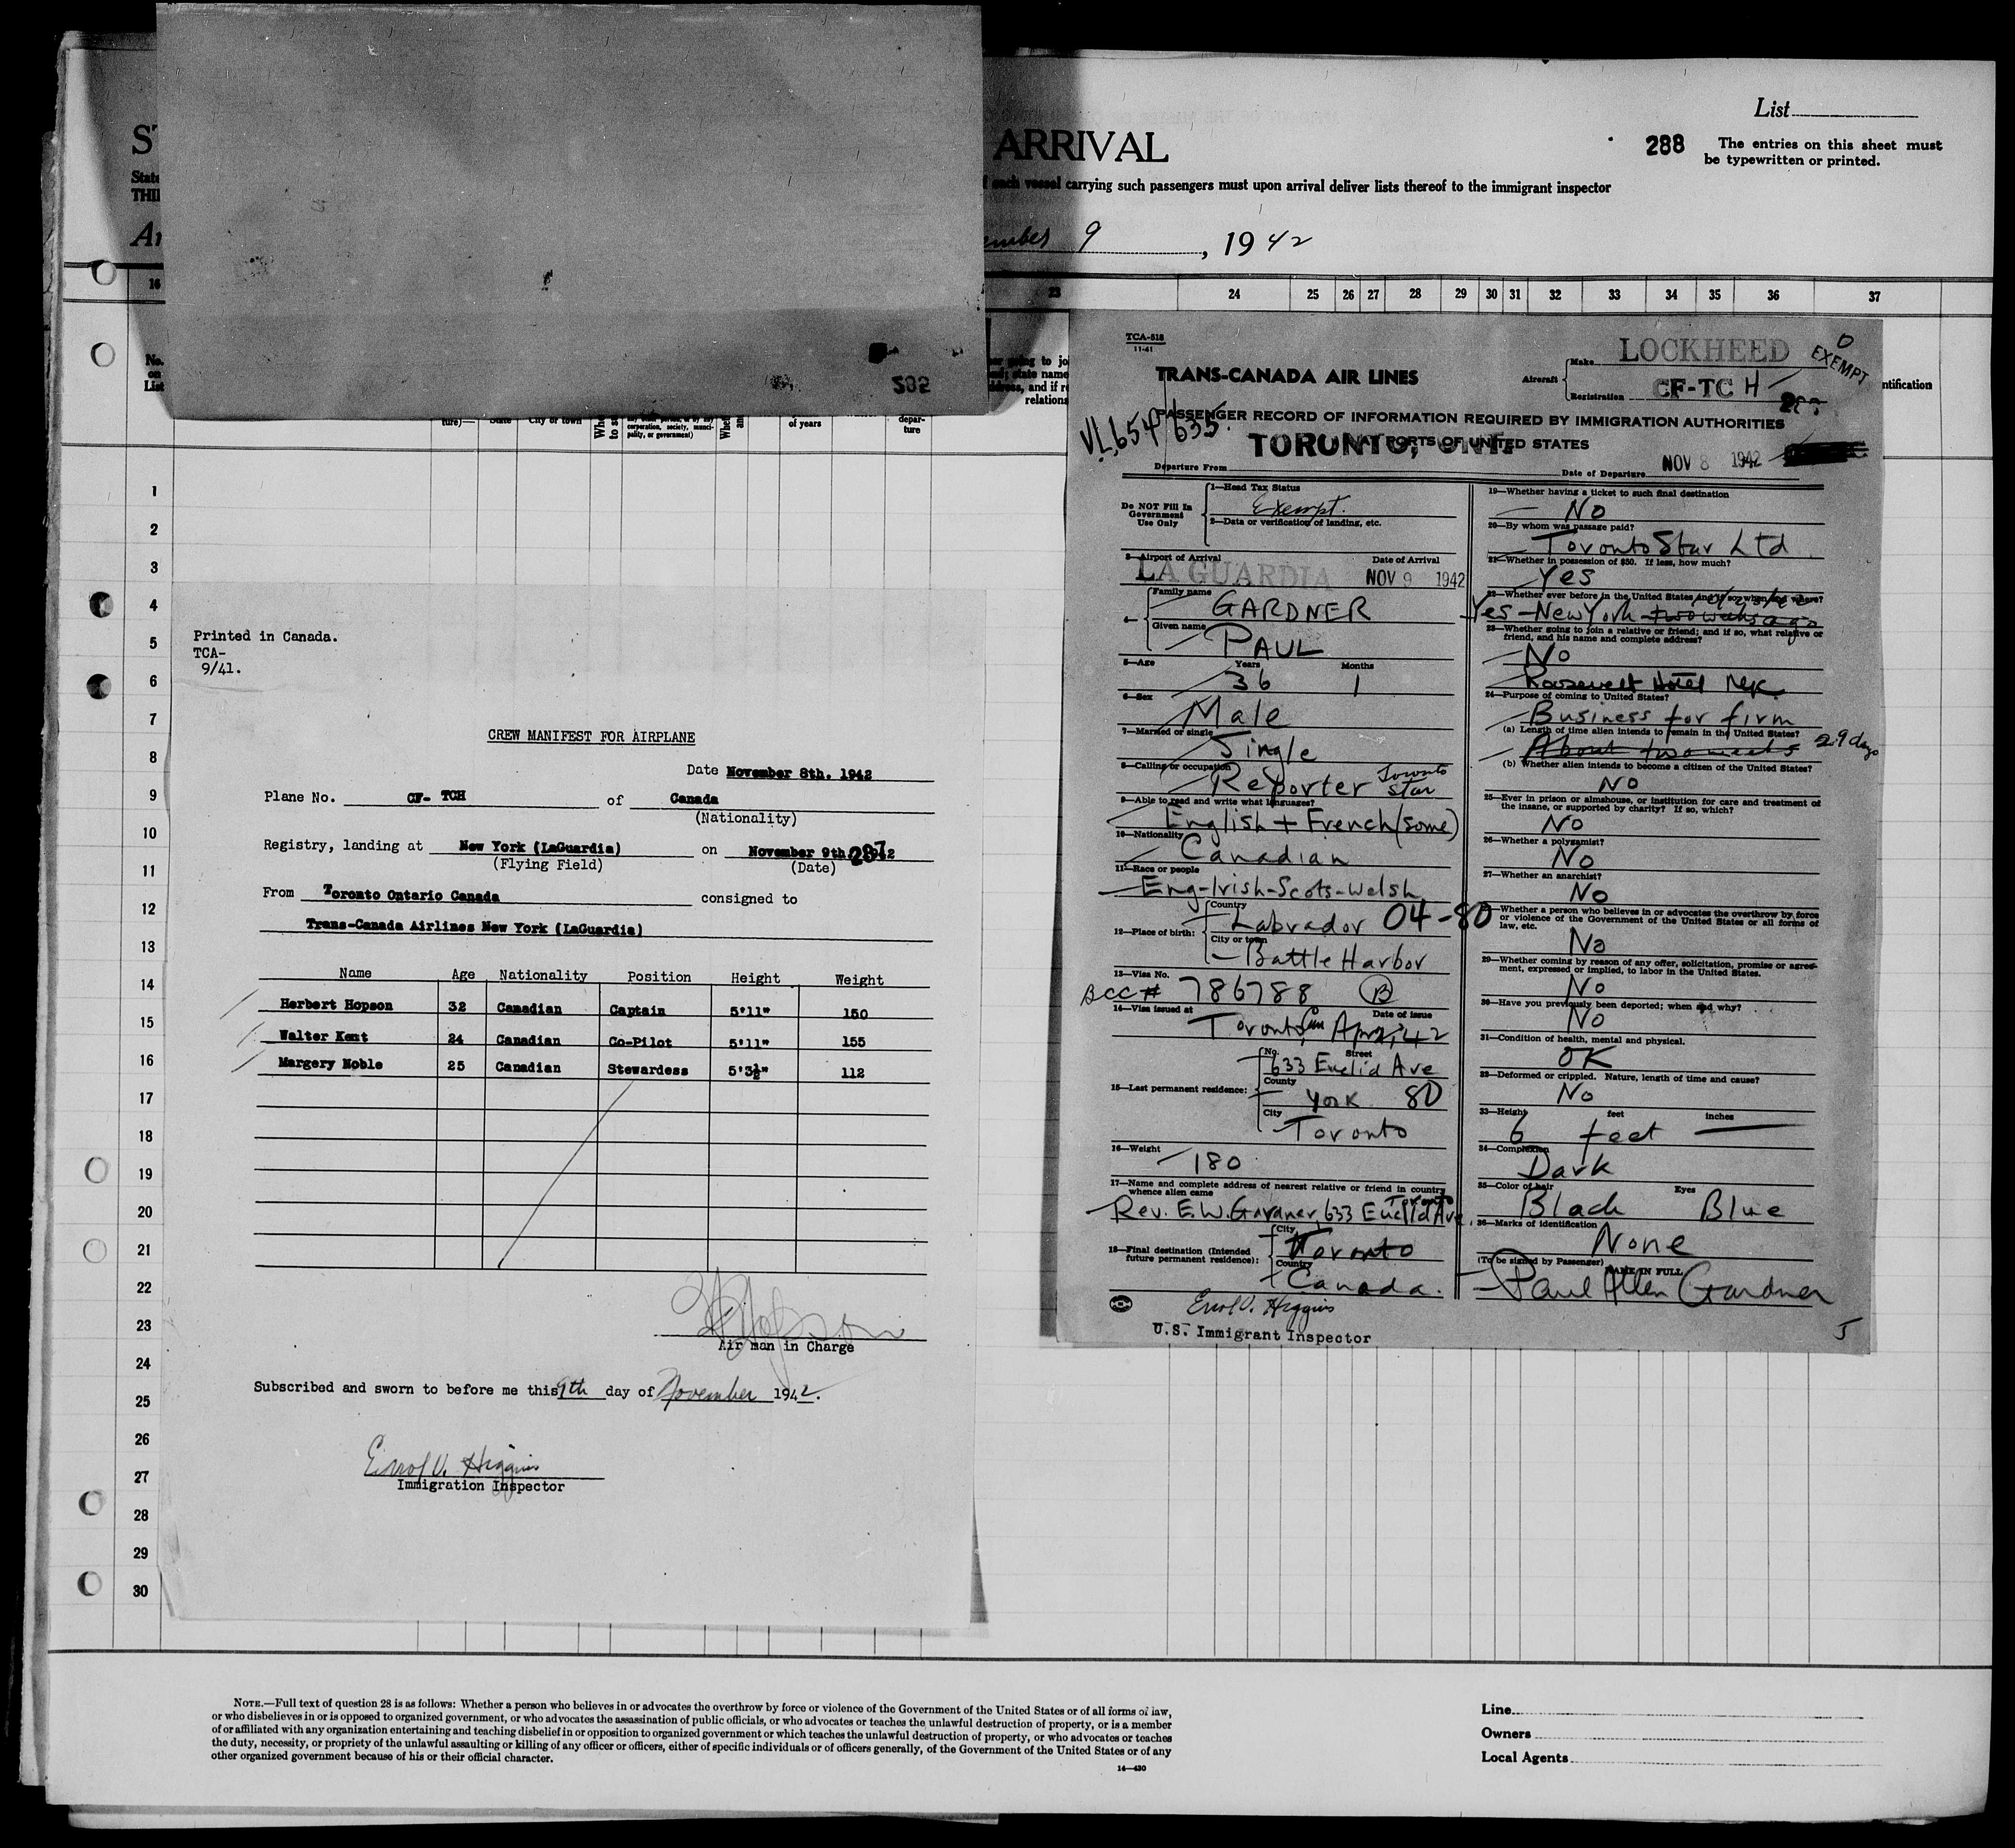 List
288 The entries on this sheet must
be typewritten or printed.
ARRIVAL
State
THI
each vessel carrying such passengers must upon arrival deliver lists thereof to the immigrant inspector
ember 9, 1942
16 23 24 25 26 27 28 29 30 31 32 33 34 35 36 37
No.
on
List
ture)— State City or town
corporation, society, munici-
pality, or government)
of years
depar-
ture
going to jo
state name
address, and if re
relations
ntification
285
1
2
3
4
5
6
7
8
9
10
11
12
13
14
15
16
17
18
19
20
21
22
23
24
25
26
27
28
29
30
Printed in Canada.
TCA-
9/41.
CREW MANIFEST FOR AIRPLANE
Date November 8th. 1942
Plane No. CF- TCH of Canada
(Nationality)
Registry, landing at New York (LaGuardia) on November 9th. 1942
287
(Flying Field) (Date)
From Toronto Ontario Canada consigned to
Trans-Canada Airlines New York (LaGuardia)
Name Age Nationality Position Height Weight
Herbert Hopson 32 Canadian Captain 5'11" 150
Walter Kent 24 Canadian Co-Pilot 5'11" 155
Margery Noble 25 Canadian Stewardess 5'3½" 112
H Hopson
Air man in Charge
Subscribed and sworn to before me this 9th day of November 1942.
Errol V. Higgins
Immigration Inspector
TCA-518
11-41
TRANS-CANADA AIR LINES
Aircraft
Make LOCKHEED
Registration CF-TC H
0
EXEMPT
PASSENGER RECORD OF INFORMATION REQUIRED BY IMMIGRATION AUTHORITIES
AT PORTS OF UNITED STATES
VL654/635.
Departure From TORONTO, ONT.
Date of Departure NOV 8 1942
Do NOT Fill In
Government
Use Only
1—Head Tax Status
Exempt.
2—Data or verification of landing, etc.
3—Airport of Arrival Date of Arrival
LA GUARDIA NOV 9 1942
4—
Family name
GARDNER
Given name
PAUL
5—Age Years Months
36 1
6—Sex
Male
7—Married or single
Single
8—Calling or occupation
Reporter Toronto Star
9—Able to read and write what languages?
English + French (some)
10—Nationality
Canadian
11—Race or people
Eng-Irish-Scots-Welsh
12—Place of birth:
Country
Labrador 04-80
City or town
Battle Harbor
13—Visa No.
BCC# 786788 B
14—Visa issued at Date of issue
Toronto, Can Apr 2, 42
15—Last permanent residence:
No. Street
633 Euclid Ave
County
York 80
City
Toronto
16—Weight
180
17—Name and complete address of nearest relative or friend in country
whence alien came
Rev. E.W. Gardner, 633 Euclid Ave, Toronto
18—Final destination (Intended
future permanent residence):
City
Toronto
Country
Canada.
Errol V. Higgins
U.S. Immigrant Inspector
19—Whether having a ticket to such final destination
No
20—By whom was passage paid?
Toronto Star Ltd
21—Whether in possession of $50. If less, how much?
Yes
22—Whether ever before in the United States and if so, when and where?
Yes – New York two weeks ago
23—Whether going to join a relative or friend; and if so, what relative or
friend, and his name and complete address?
No
Roosevelt Hotel
24—Purpose of coming to United States?
Business for firm
(a) Length of time alien intends to remain in the United States?
About two weeks 29 days
(b) Whether alien intends to become a citizen of the United States?
No
25—Ever in prison or almshouse, or institution for care and treatment of
the insane, or supported by charity? If so, which?
No
26—Whether a polygamist?
No
27—Whether an anarchist?
No
28—Whether a person who believes in or advocates the overthrow by force
or violence of the Government of the United States or all forms of
law, etc.
No
29—Whether coming by reason of any offer, solicitation, promise or agree-
ment, expressed or implied, to labor in the United States.
No
30—Have you previously been deported; when and why?
No
31—Condition of health, mental and physical.
OK
32—Deformed or crippled. Nature, length of time and cause?
No
33—Height feet inches
6 feet —
34—Complexion
Dark
35—Color of hair Eyes
Black Blue
36—Marks of identification
None
(To be signed by Passenger) NAME IN FULL
Paul Allen Gardner
5
NOTE.—Full text of question 28 is as follows: Whether a person who believes in or advocates the overthrow by force or violence of the Government of the United States or of all forms of law,
or who disbelieves in or is opposed to organized government, or who advocates the assassination of public officials, or who advocates or teaches the unlawful destruction of property, or is a member
of or affiliated with any organization entertaining and teaching disbelief in or opposition to organized government or which teaches the unlawful destruction of property, or who advocates or teaches
the duty, necessity, or propriety of the unlawful assaulting or killing of any officer or officers, either of specific individuals or of officers generally, of the Government of the United States or of any
other organized government because of his or their official character.
14—430
Line
Owners
Local Agents